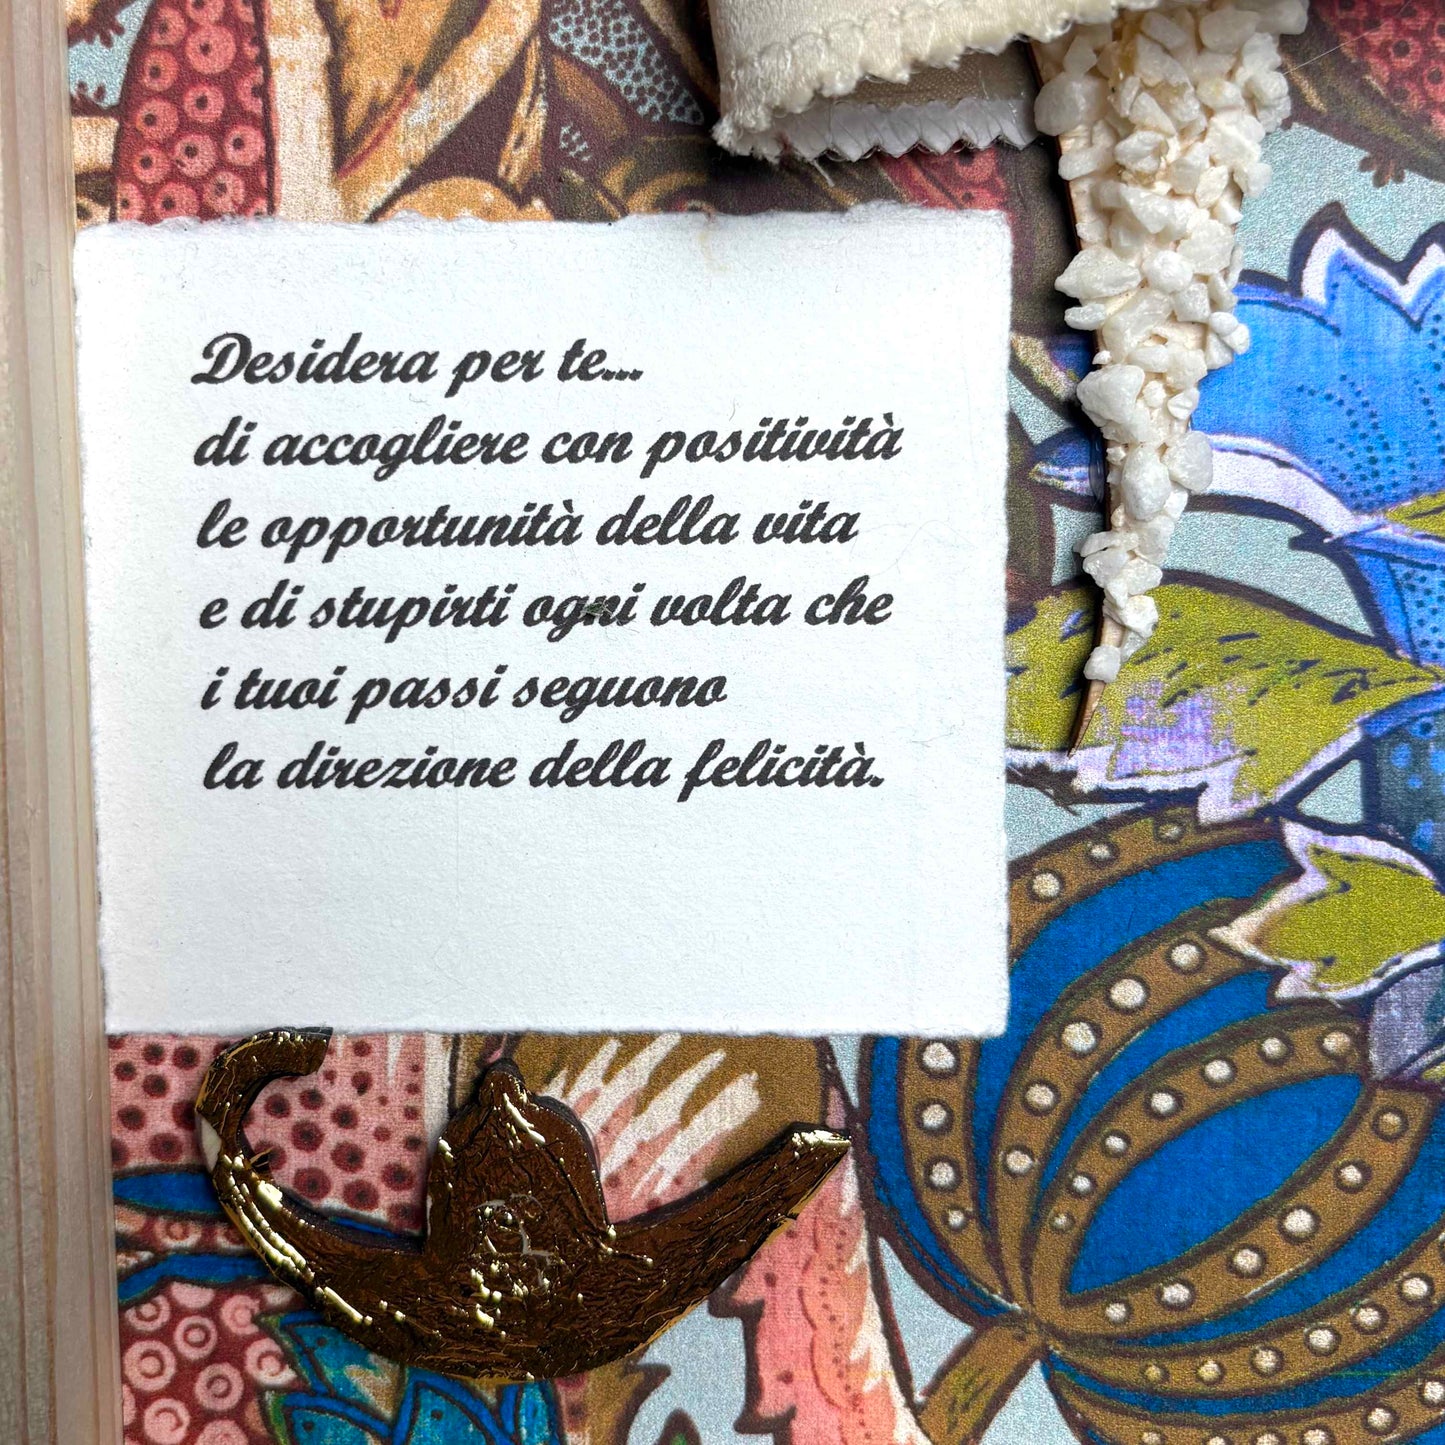 Desidera per te...
di accogliere con positività
le opportunità della vita
e di stupirti ogni volta che
i tuoi passi seguono
la direzione della felicità.